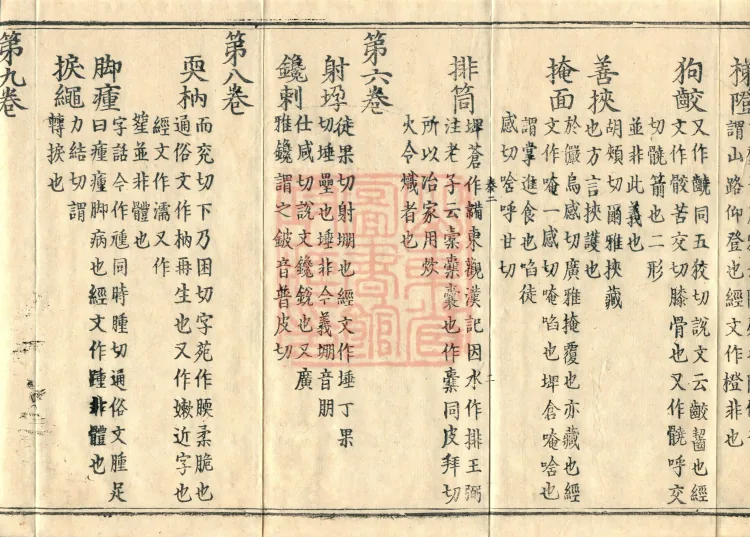 棧隥
謂山路仰登也經文作橙非也
狗齩
又作䶧同五狡切說文云齩齧也經
文作骹苦交切膝骨也又作髐呼交
切髐箭也二形
並非此義也
善挾
胡頰切爾雅挾藏
也方言挾護也
掩面
於儼烏感切廣雅掩覆也亦藏也經
文作唵一感切唵啗也埤倉唵啥也
謂掌進食也啗徒
感切啥呼甘切
卷二
二
排筒
埤蒼作𩎻東觀漢記因水作排王弼
注老子云橐橐囊也作橐同皮拜切
所以冶家用炊
火令熾者也
第六卷
射垜
徒果切射堋也經文作埵丁果
切埵壘也埵非今義堋音朋
鑱刺
仕咸切說文鑱銳也又廣
雅鑱謂之鈹音普皮切
第八卷
耎枘
而兖切下乃困切字苑作腝柔脆也
通俗文作枘再生也又作嫩近字也
經文作濡又作
䇯並非體也
脚瘇
字詁今作𤺄同時腫切通俗文腫足
曰瘇瘇脚病也經文作踵非體也
捩繩
力結切謂
轉捩也
第九卷